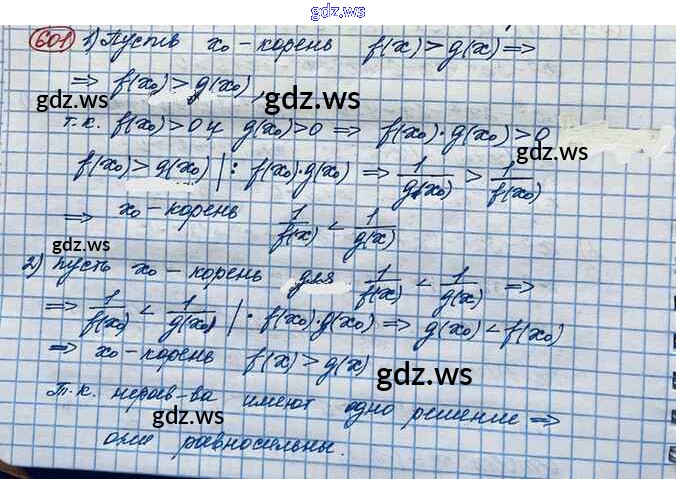 gdz.ws
601 1) Пусть x₀ - корень f(x) > g(x) ⇒
⇒ f(x₀) > g(x₀),
gdz.ws gdz.ws
т.к. f(x₀) > 0 и g(x₀) > 0 ⇒ f(x₀)·g(x₀) > 0
gdz.ws
f(x₀) > g(x₀) | : f(x₀)·g(x₀) ⇒ 1/g(x₀) > 1/f(x₀)
⇒ x₀ - корень 1/f(x) < 1/g(x)
gdz.ws
2) пусть x₀ - корень для 1/f(x) < 1/g(x) ⇒
⇒ 1/f(x₀) < 1/g(x₀) | · f(x₀)·g(x₀) ⇒ g(x₀) < f(x₀)
⇒ x₀ - корень f(x) > g(x)
gdz.ws
Т.к. нерав-ва имеют одно решение ⇒
gdz.ws
они равносильны.
gdz.ws